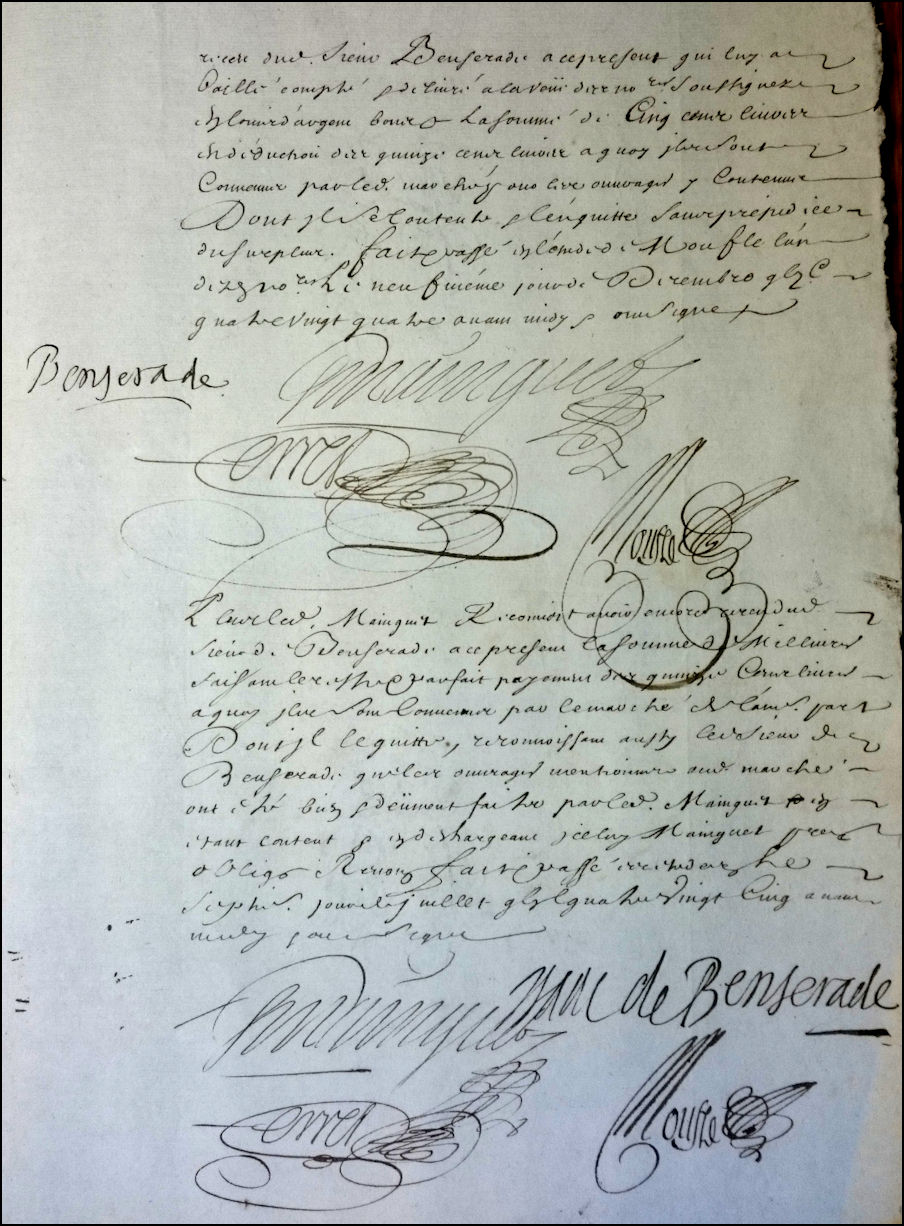 dud. Sieur Benserade a ce present qui luy a
baillé compté & delivré a la veüe des no.res soussignez
en louis d'argent bons & la somme de Cinq cens livres
en déduction des quinze cens livres a quoy ils sont
Convenus par led. marché pour les ouvrages y contenus
Dont il se contente & l'en quitte sans prejudice
du surplus. fait & passé en l'estude de Moufle l'un
desd. no.res Le neufviéme jour de Decembre gbj.C
quatrevingt quatre avant midy & ont signé
Benserade
Mainguet
Torres
Moufle
Et led. Mainguet Reconnoist avoir encores receu dud.
Sieur de Benserade a ce present la somme de Mil livres
faisant le reste & parfait payement des quinze Cens livres
a quoy ils sont Convenus par le marché de l'autre part
Dont il le quitte, reconnoissant aussy led. Sieur de
Benserade que les ouvrages mentionnez aud. marché
ont été bien & deüment faits par led. Mainguet en
étant content & en déchargeant iceluy Mainguet
obligé Renon. fait & passé
Sept.e jour de juillet gbj.C quatrevingt Cinq avant
midy & ont signé
Mainguet
Isaac de Benserade
Torres
Moufle